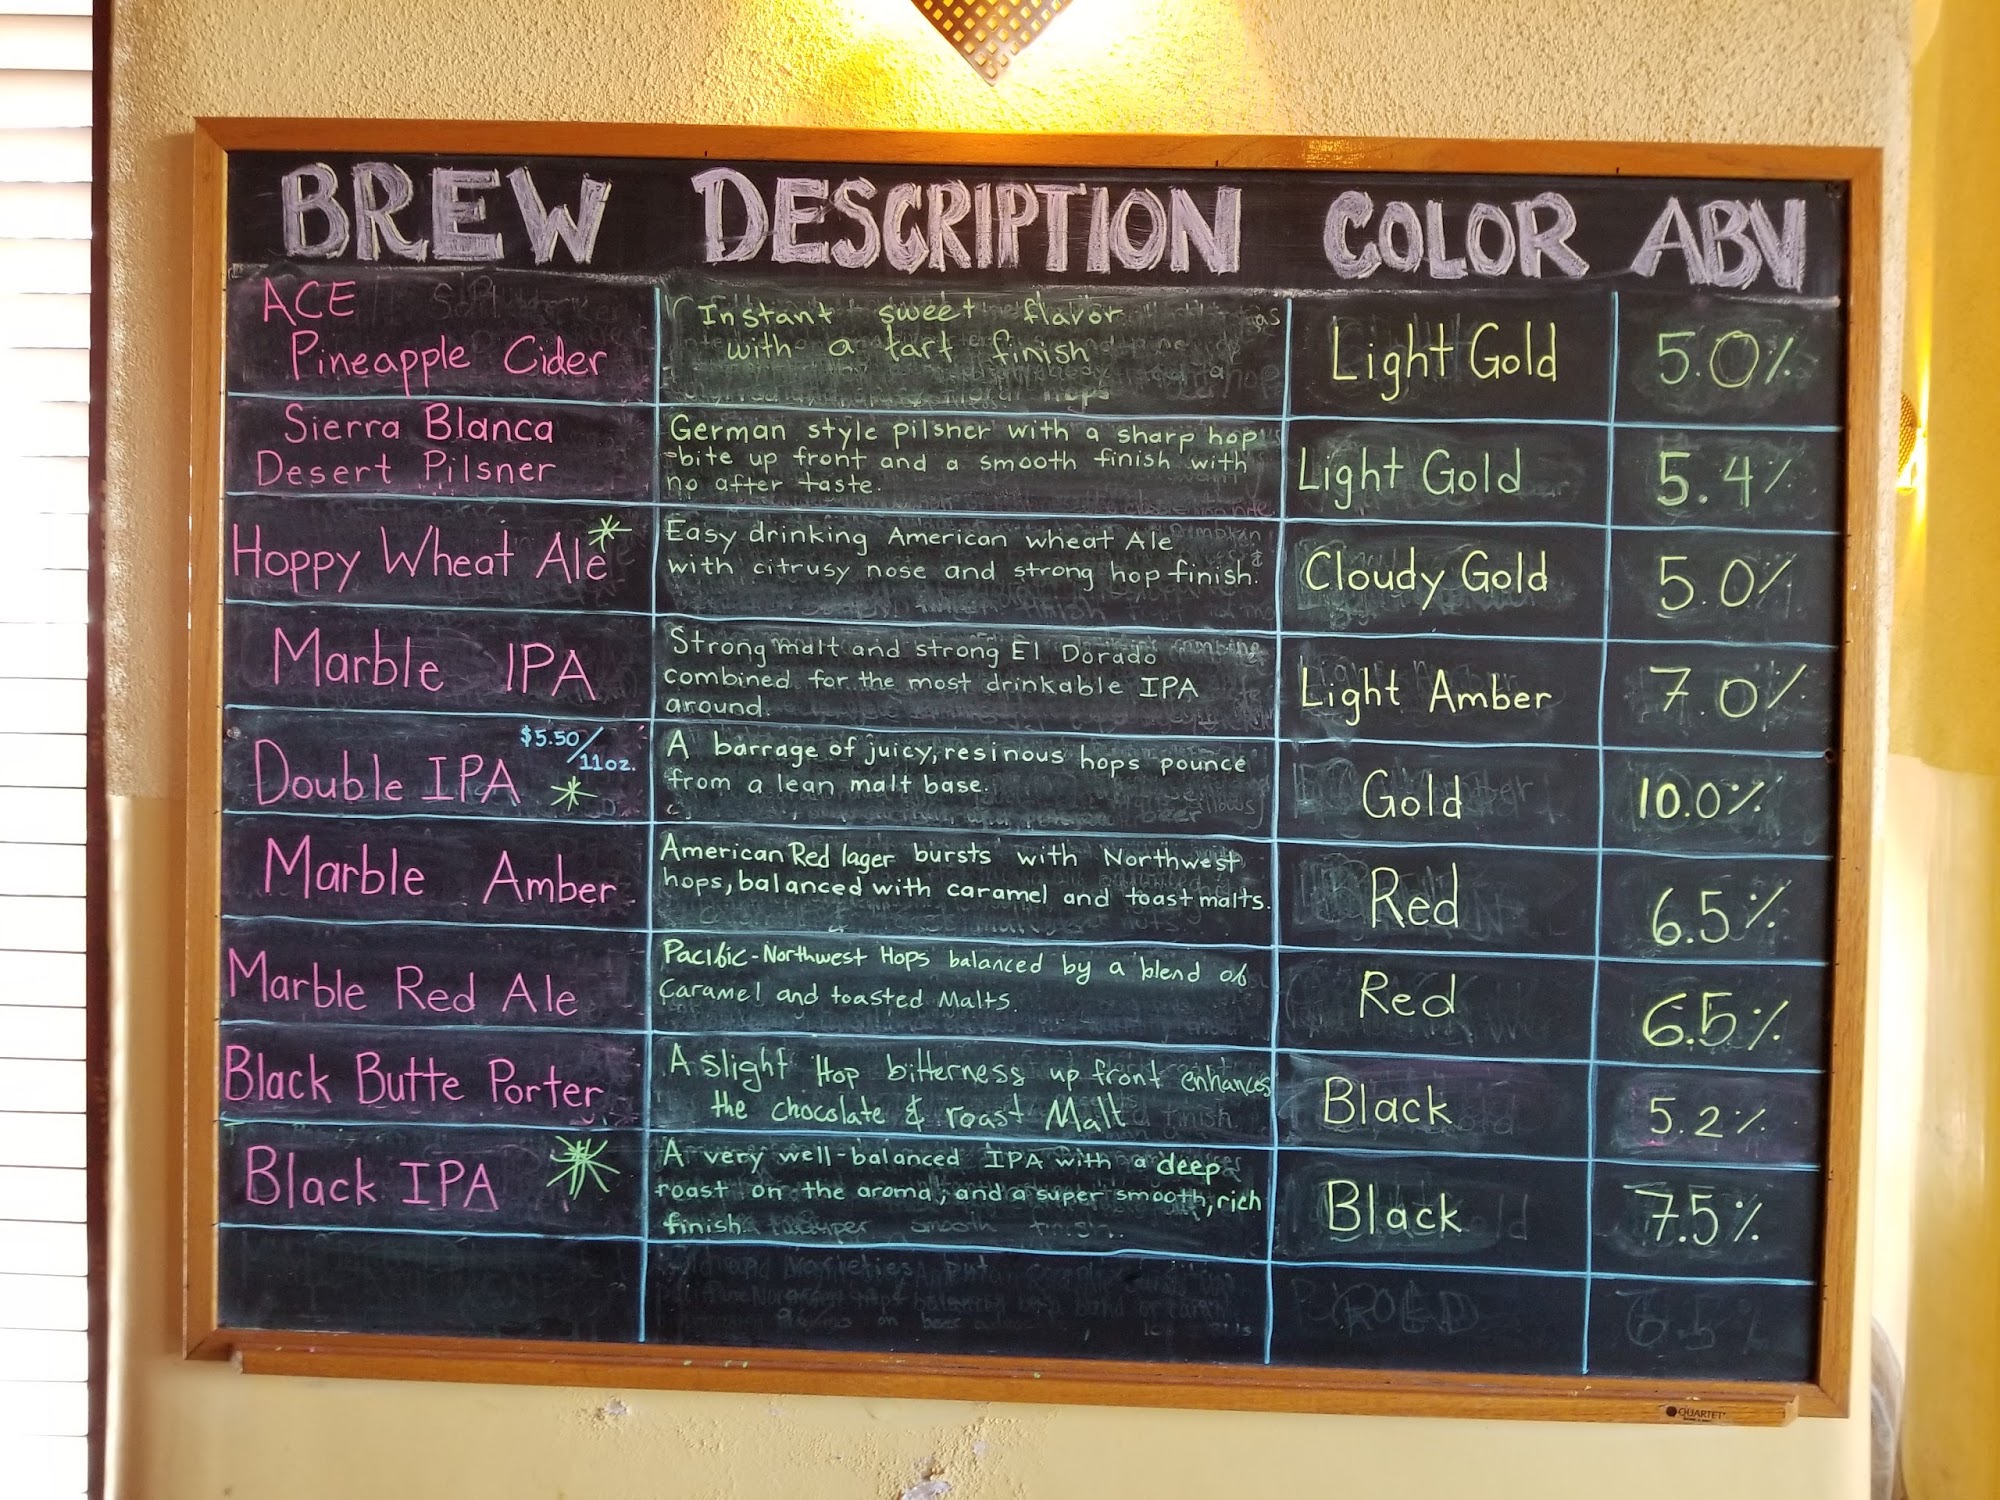 BREW DESCRIPTION COLOR ABV
ACE
Pineapple Cider
Instant sweet flavor
with a tart finish
Light Gold
5.0%
Sierra Blanca
Desert Pilsner
German style pilsner with a sharp hop
bite up front and a smooth finish with
no after taste.
Light Gold
5.4%
Hoppy Wheat Ale
Easy drinking American wheat Ale
with citrusy nose and strong hop finish.
Cloudy Gold
5.0%
Marble IPA
Strong malt and strong El Dorado
combined for the most drinkable IPA
around.
Light Amber
7.0%
Double IPA
$5.50/11oz.
A barrage of juicy, resinous hops pounce
from a lean malt base.
Gold
10.0%
Marble Amber
American Red lager bursts with Northwest
hops, balanced with caramel and toast malts.
Red
6.5%
Marble Red Ale
Pacific-Northwest Hops balanced by a blend of
Caramel and toasted Malts.
Red
6.5%
Black Butte Porter
A slight Hop bitterness up front enhances
the chocolate & roast Malt
Black
5.2%
Black IPA
A very well-balanced IPA with a deep
roast on the aroma, and a super smooth, rich
finish
Black
7.5%
QUARTET